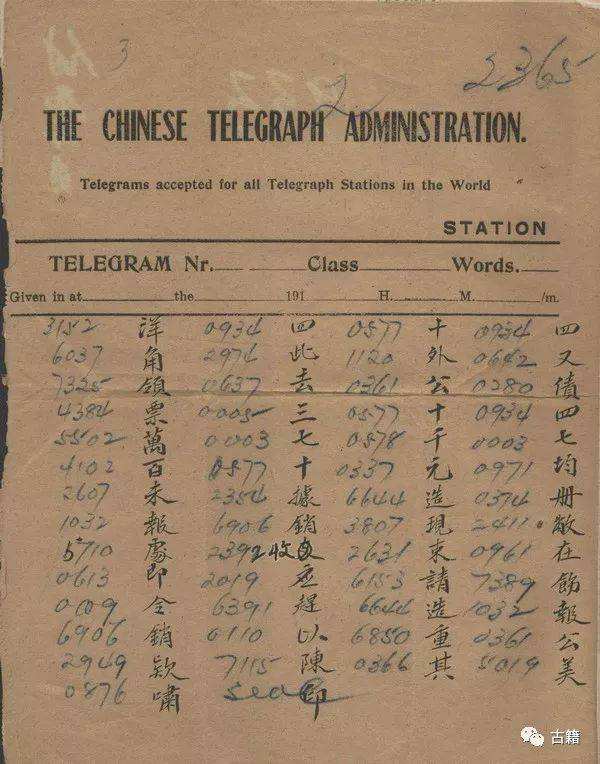 3
2365
2
THE CHINESE TELEGRAPH ADMINISTRATION.
Telegrams accepted for all Telegraph Stations in the World
STATION
TELEGRAM Nr. Class Words.
Given in at the 191 H. M. /m.
3152 洋 0934 四 0577 十 0934 四
6037 角 2974 此 1120 外 0642 又
7325 領 0637 去 0361 公 0280 債
4384 票 0005 三 0577 十 0934 四
5502 萬 0003 七 0578 千 0003 七
4102 百 0577 十 0337 元 0971 均
2607 未 2354 據 6644 造 0374 册
1032 報 6906 銷 3807 現 2411 敝
5710 處 2392 收 2631 束 0961 在
0613 即 2019 應 6153 請 7389 飭
0109 令 6391 得 6644 造 1032 報
6906 銷 0110 以 6850 重 0361 公
2949 欵 7115 陳 0366 其 5019 美
0876 嘯 seal 印
古籍